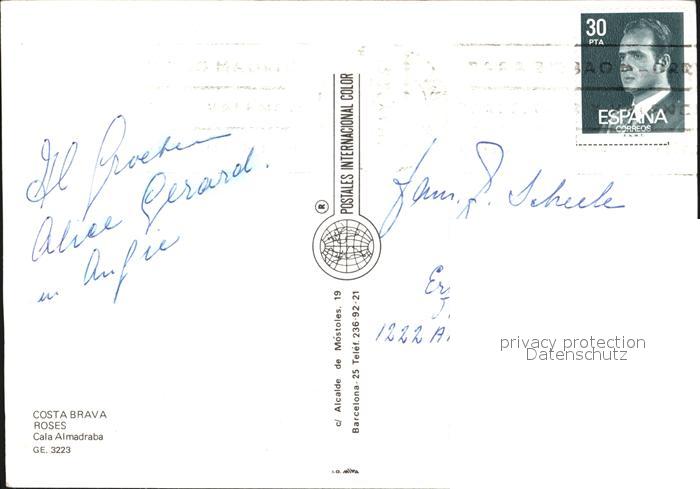 30
PTA
ESPAÑA
CORREOS
Alice Gerard.
en Angie
Fam. P. Scheele
1222 A
COSTA BRAVA
ROSES
Cala Almadraba
GE. 3223
POSTALES INTERNACIONAL COLOR
®
c/ Alcalde de Móstoles, 19
Barcelona-25 Teléf. 236-92-21
privacy protection
Datenschutz